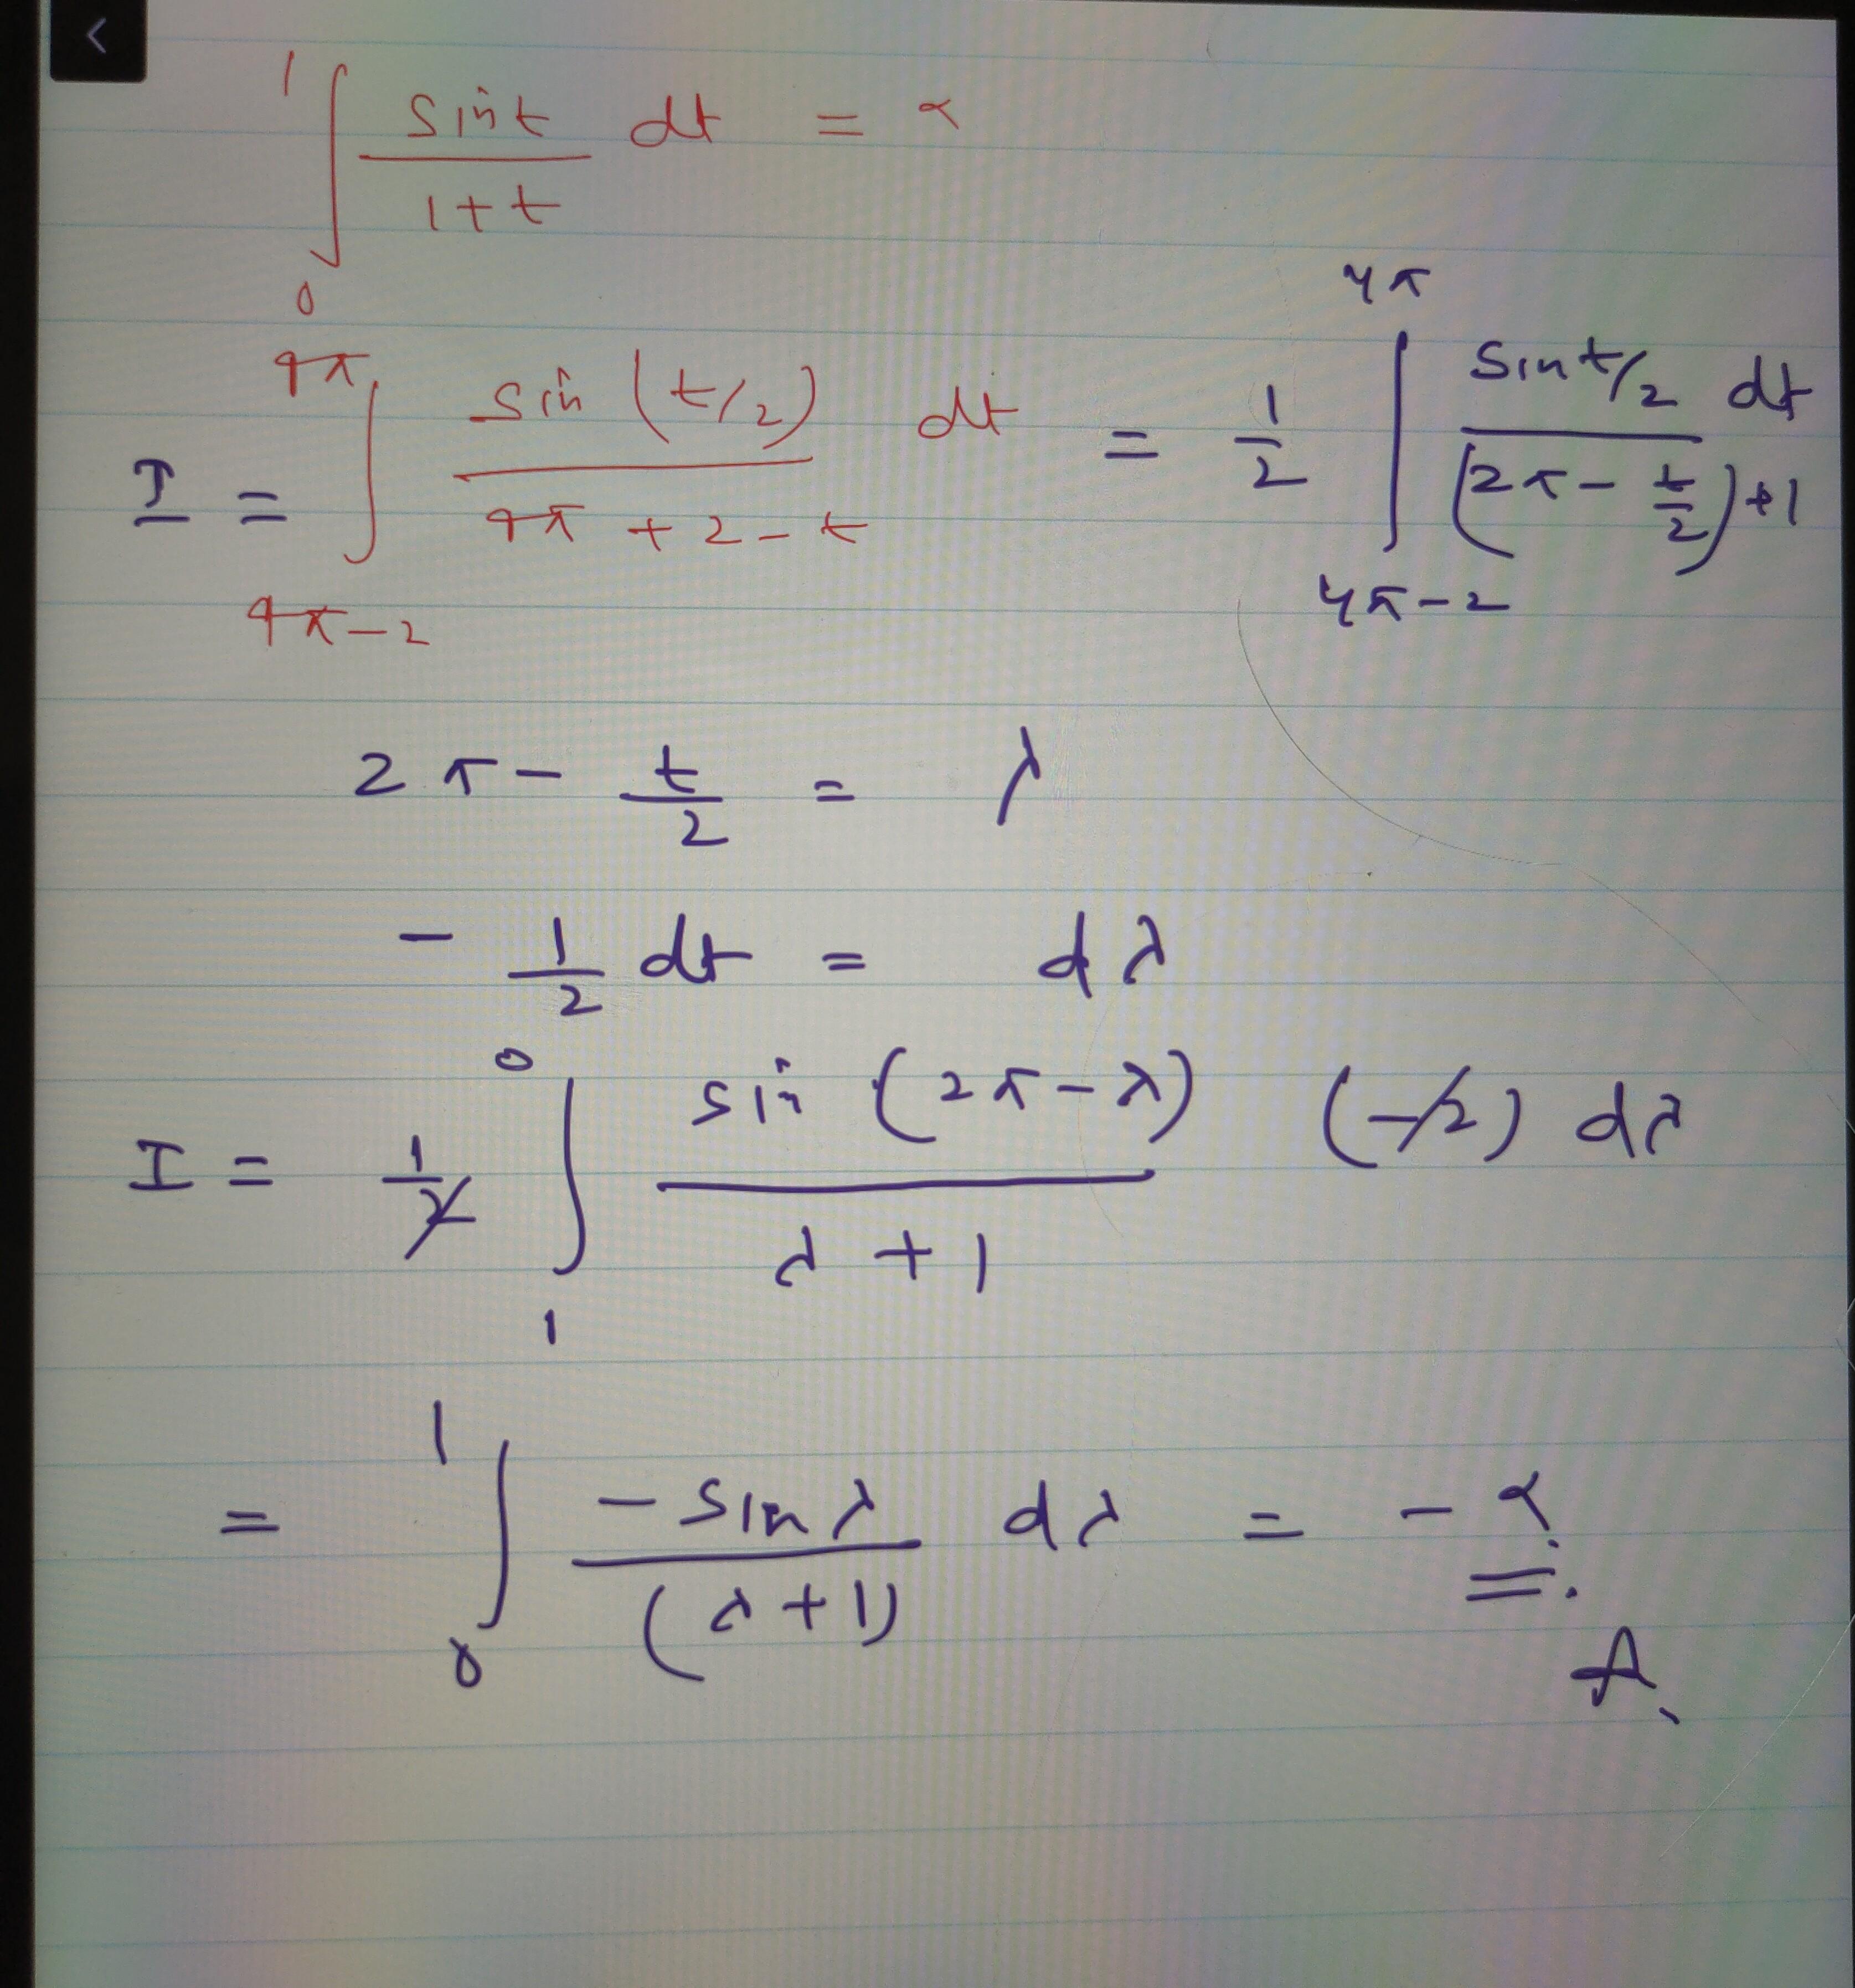 ∫₀¹ sin t / (1 + t) dt = α
I = ∫_{4π-2}^{4π} sin (t/2) / (4π + 2 - t) dt = 1/2 ∫_{4π-2}^{4π} sin t/2 dt / ((2π - t/2) + 1)
2π - t/2 = λ
- 1/2 dt = dλ
I = 1/2 ∫₁⁰ sin (2π - λ) / (λ + 1) (-2) dλ
= ∫₀¹ - sin λ / (λ + 1) dλ = - α.
A.